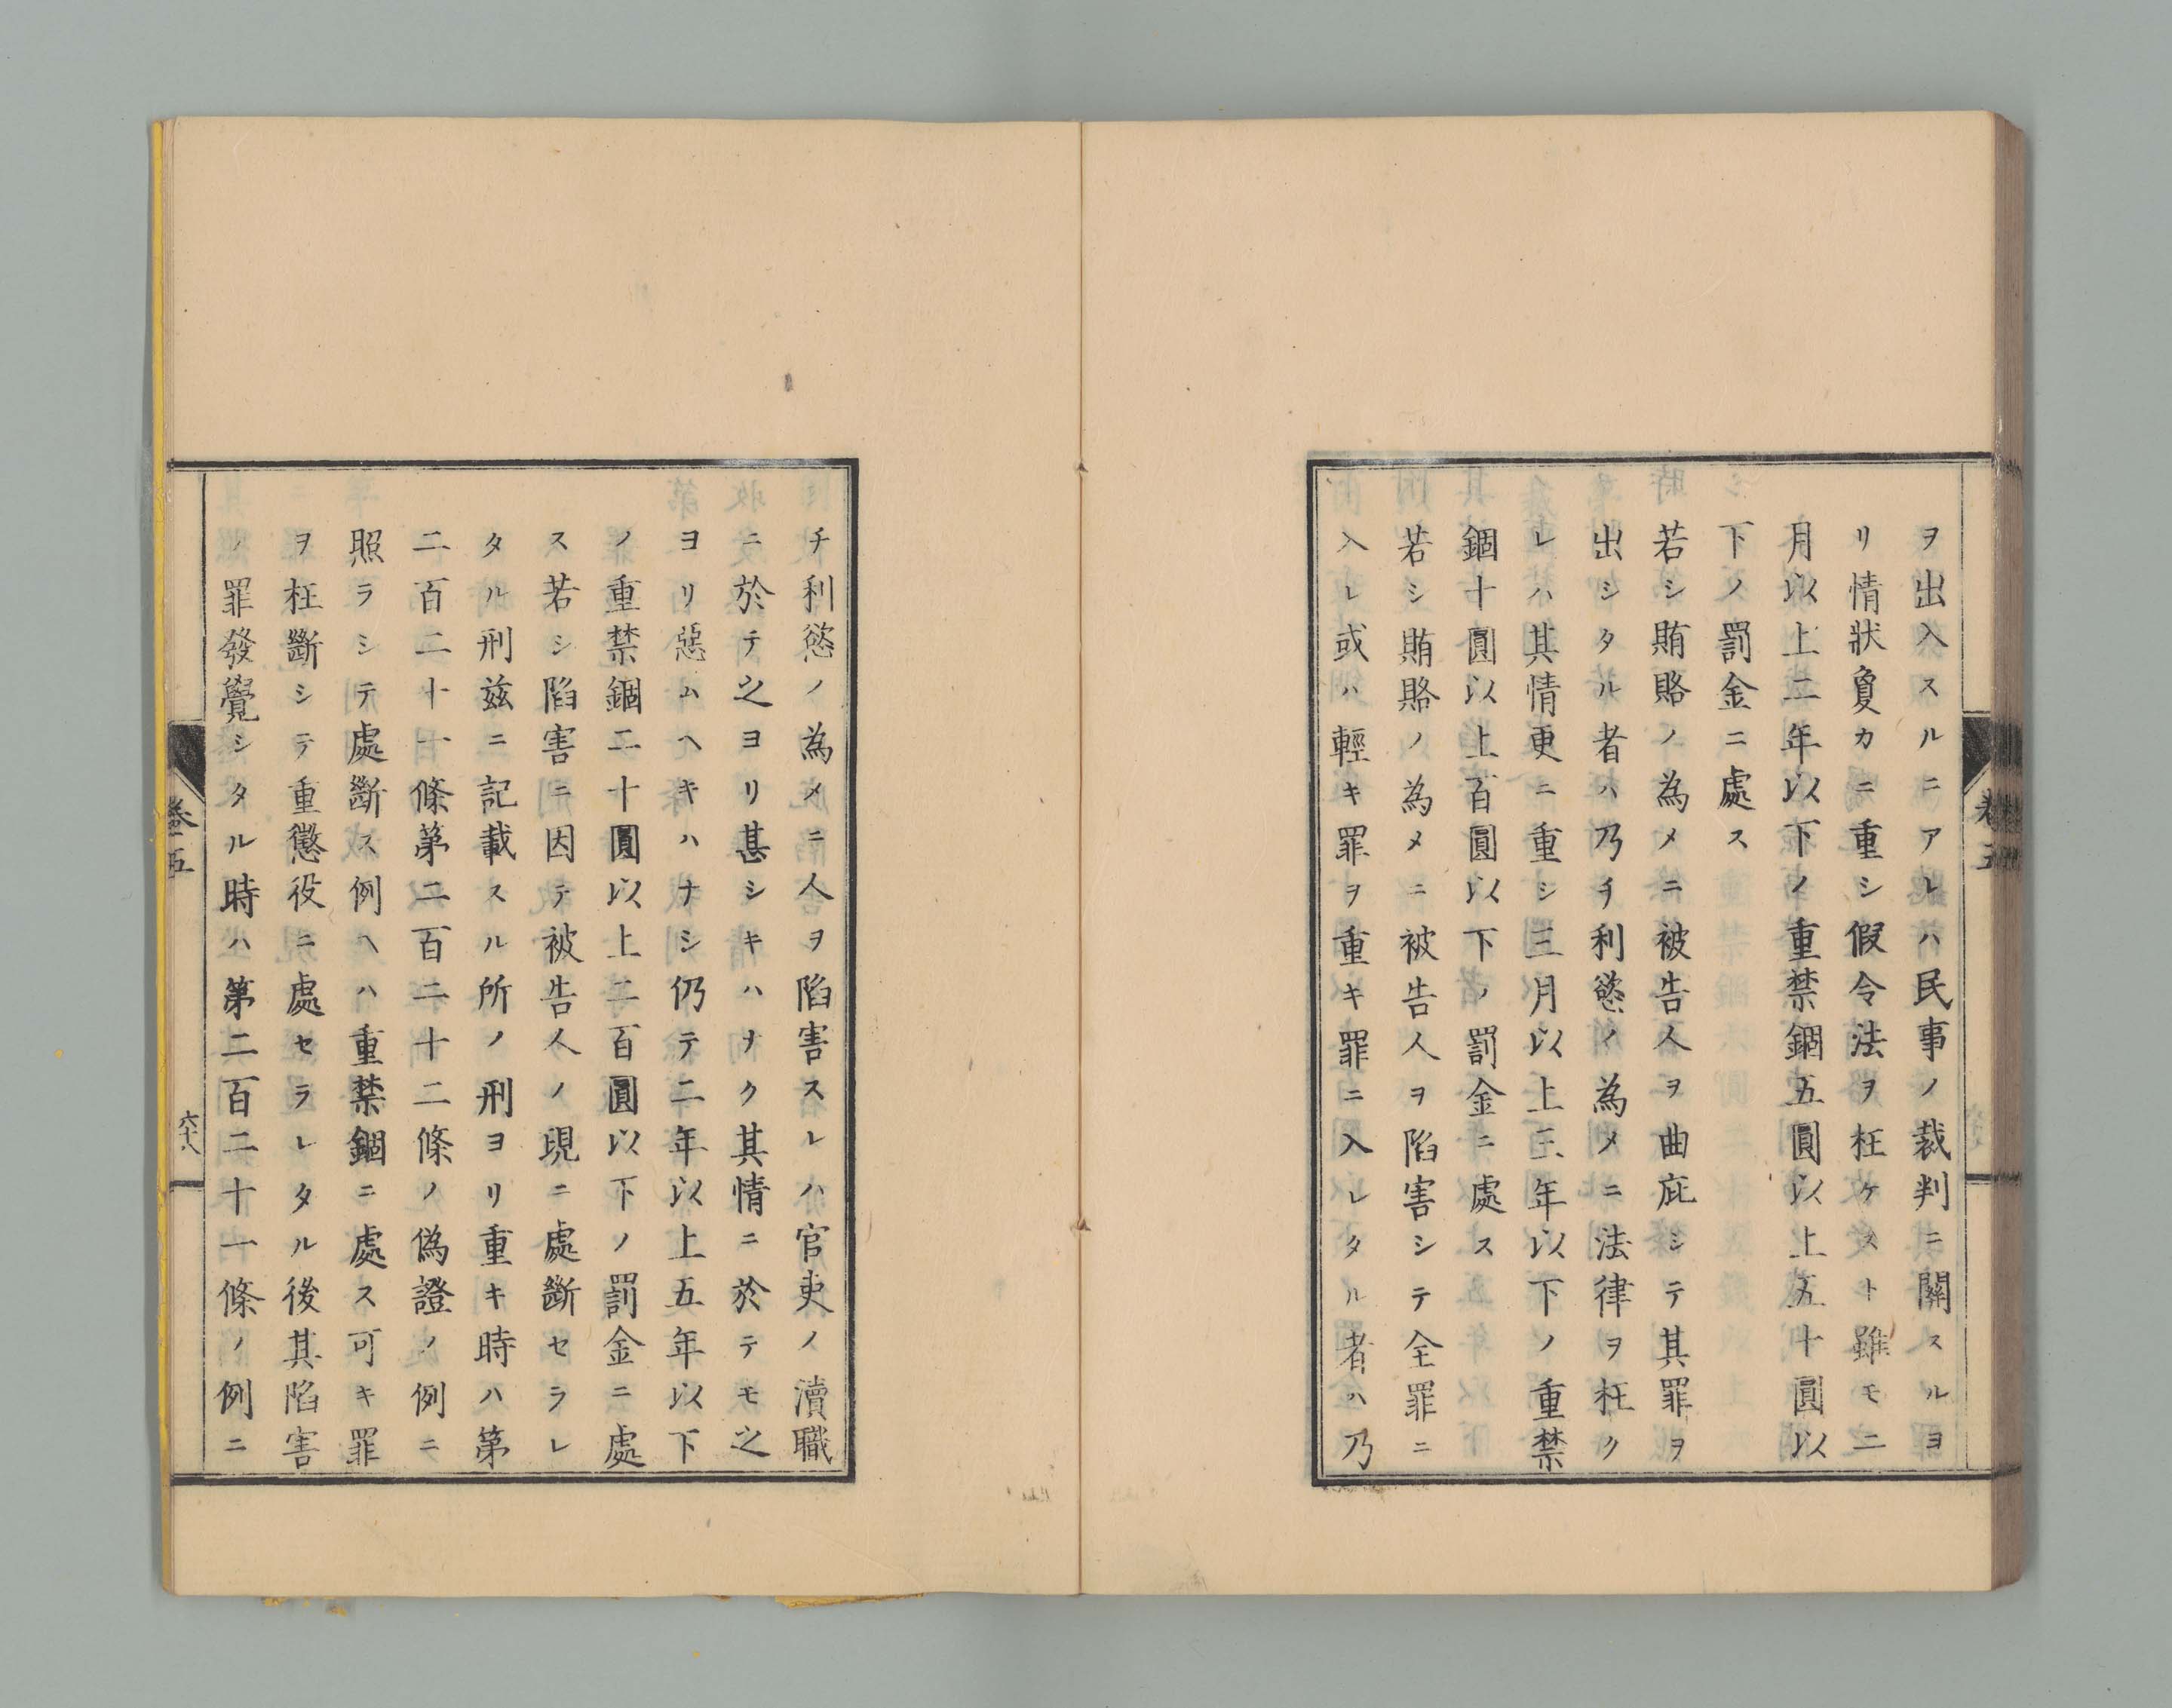 ヲ出入スルニアレハ民事ノ裁判ニ關スルヨ
リ情狀敻カニ重シ假令法ヲ枉ケスト雖モ二
月以上二年以下ノ重禁錮五圓以上五十圓以
下ノ罰金ニ處ス
若シ賄賂ノ為メニ被告人ヲ曲庇シテ其罪ヲ
出シタル者ハ乃チ利慾ノ為メニ法律ヲ枉ク
レハ其情更ニ重シ三月以上三年以下ノ重禁
錮十圓以上百圓以下ノ罰金ニ處ス
若シ賄賂ノ為メニ被告人ヲ陷害シテ全罪ニ
入レ或ハ輕キ罪ヲ重キ罪ニ入レタル者ハ乃
チ利慾ノ為メニ人ヲ陷害スレハ官吏ノ瀆職
ニ於テ之ヨリ甚シキハナク其情ニ於テモ之
ヨリ惡ムヘキハナシ仍テ二年以上五年以下
ノ重禁錮二十圓以上二百圓以下ノ罰金ニ處
ス若シ陷害ニ因テ被告人ノ現ニ處斷セラレ
タル刑茲ニ記載スル所ノ刑ヨリ重キ時ハ第
二百二十一條第二百二十二條ノ偽證ノ例ニ
照ラシテ處斷ス例ヘハ重禁錮ニ處ス可キ罪
ヲ枉斷シテ重懲役ニ處セラレタル後其陷害
ノ罪發覺シタル時ハ第二百二十一條ノ例ニ
卷五
六十八